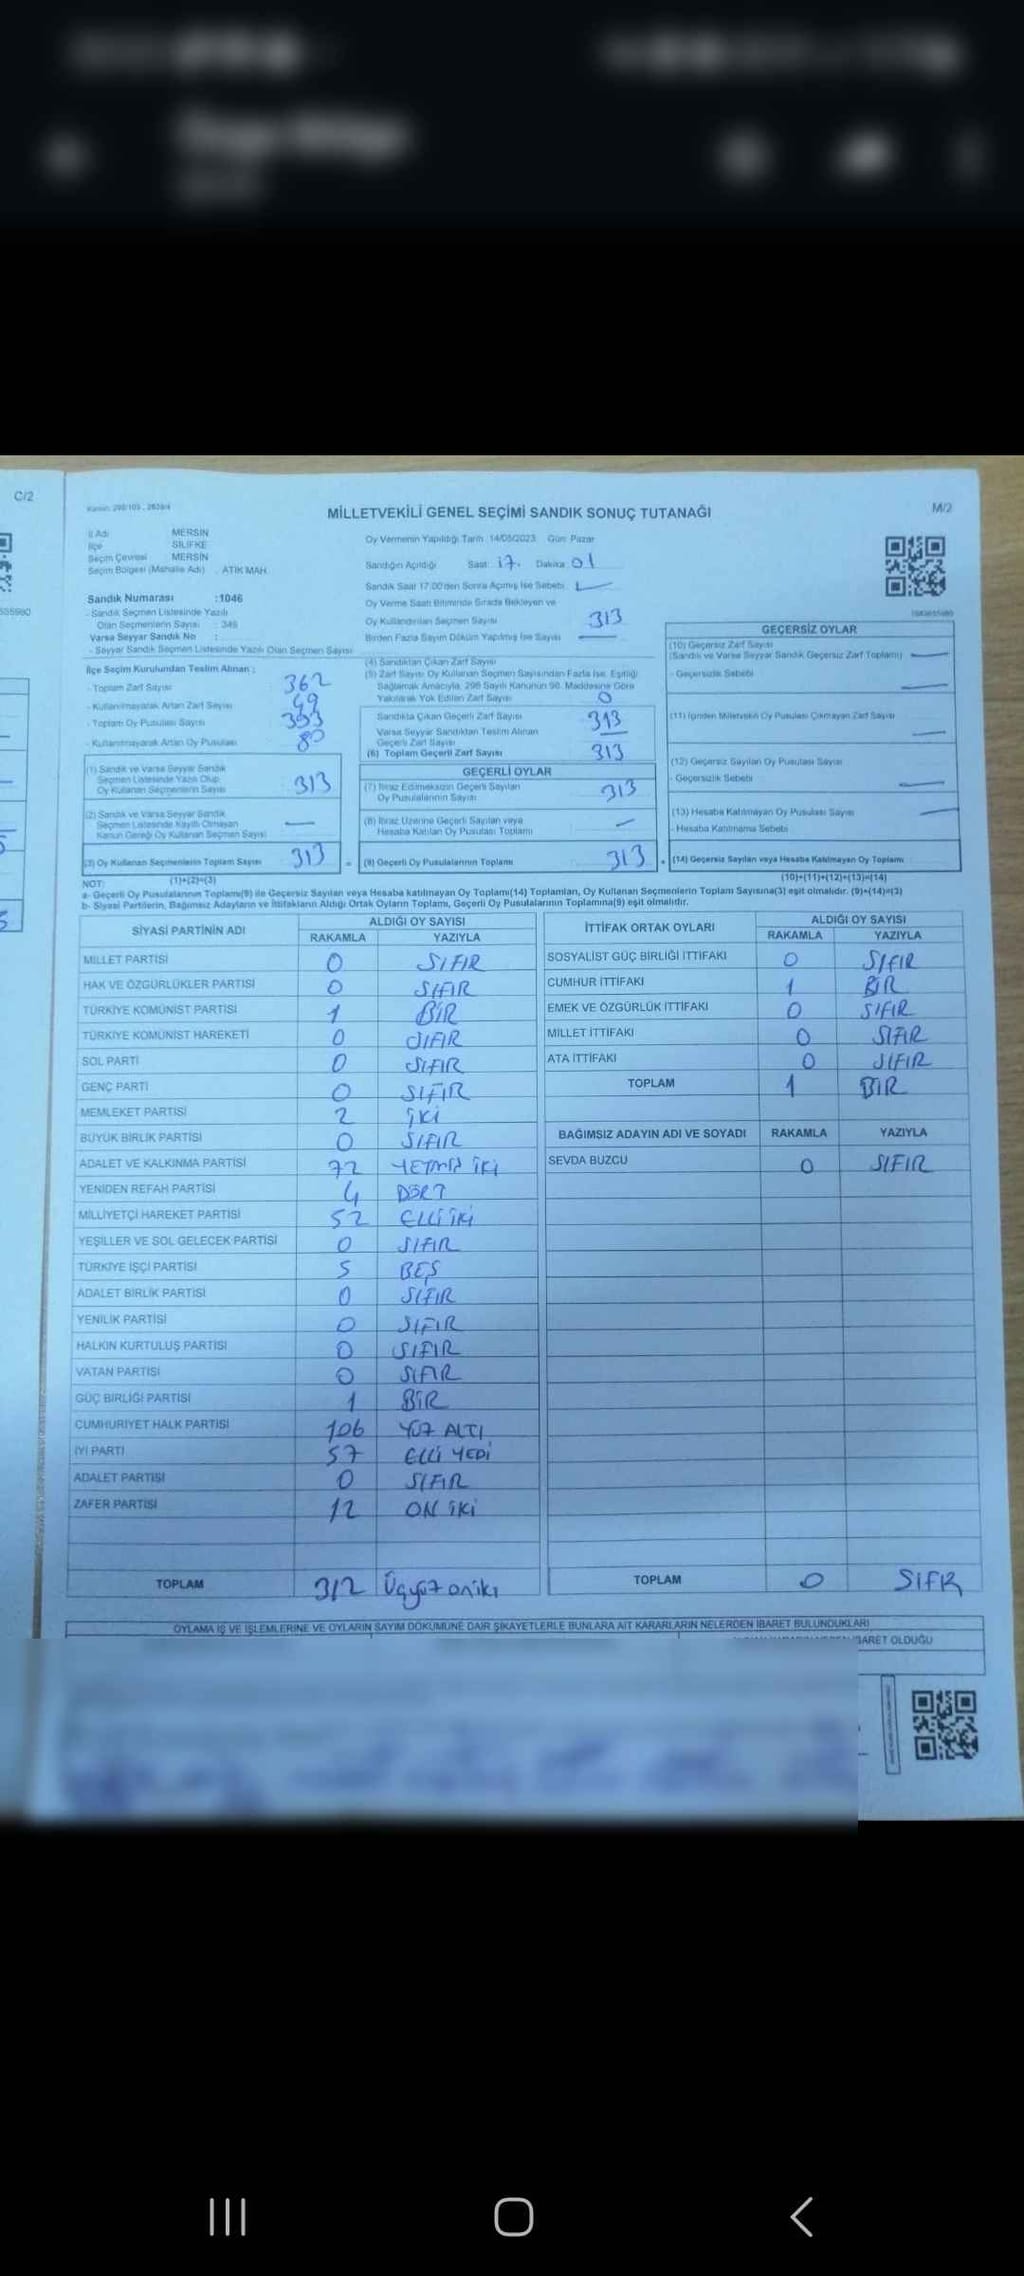 C/2
Kanun: 298/105, 2839/4
MİLLETVEKİLİ GENEL SEÇİMİ SANDIK SONUÇ TUTANAĞI
M/2
İl Adı MERSİN
İlçe SİLİFKE
Seçim Çevresi MERSİN
Seçim Bölgesi (Mahalle Adı) . ATİK MAH.
Sandık Numarası :1046
- Sandık Seçmen Listesinde Yazılı
Olan Seçmenlerin Sayısı : 346
Varsa Seyyar Sandık No :
- Seyyar Sandık Seçmen Listesinde Yazılı Olan Seçmen Sayısı
İlçe Seçim Kurulundan Teslim Alınan :
- Toplam Zarf Sayısı 362
- Kullanılmayarak Artan Zarf Sayısı 49
- Toplam Oy Pusulası Sayısı 393
- Kullanılmayarak Artan Oy Pusulası 80
(1) Sandık ve Varsa Seyyar Sandık
Seçmen Listesinde Yazılı Olup
Oy Kullanan Seçmenlerin Sayısı 313
(2) Sandık ve Varsa Seyyar Sandık
Seçmen Listesinde Kayıtlı Olmayan
Kanun Gereği Oy Kullanan Seçmen Sayısı —
(3) Oy Kullanan Seçmenlerin Toplam Sayısı 313 =
(1)+(2)=(3)
Oy Vermenin Yapıldığı Tarih :14/05/2023 Gün: Pazar
Sandığın Açıldığı Saat: 17. Dakika 01
Sandık Saat 17:00'den Sonra Açılmış İse Sebebi
Oy Verme Saati Bitiminde Sırada Bekleyen ve
Oy Kullandırılan Seçmen Sayısı
Birden Fazla Sayım Döküm Yapılmış İse Sayısı —
313
(4) Sandıktan Çıkan Zarf Sayısı
(5) Zarf Sayısı Oy Kullanan Seçmen Sayısından Fazla İse, Eşitliği
Sağlamak Amacıyla, 298 Sayılı Kanunun 98. Maddesine Göre
Yakılarak Yok Edilen Zarf Sayısı 0
Sandıkta Çıkan Geçerli Zarf Sayısı 313
Varsa Seyyar Sandıktan Teslim Alınan
Geçerli Zarf Sayısı —
(6) Toplam Geçerli Zarf Sayısı 313
GEÇERLİ OYLAR
(7) İtiraz Edilmeksizin Geçerli Sayılan
Oy Pusulalarının Sayısı 313
(8) İtiraz Üzerine Geçerli Sayılan veya
Hesaba Katılan Oy Pusulası Toplamı —
(9) Geçerli Oy Pusulalarının Toplamı 313 +
GEÇERSİZ OYLAR
(10) Geçersiz Zarf Sayısı
(Sandık ve Varsa Seyyar Sandık Geçersiz Zarf Toplamı) —
- Geçersizlik Sebebi —
(11) İçinden Milletvekili Oy Pusulası Çıkmayan Zarf Sayısı —
(12) Geçersiz Sayılan Oy Pusulası Sayısı
- Geçersizlik Sebebi —
(13) Hesaba Katılmayan Oy Pusulası Sayısı —
- Hesaba Katılmama Sebebi
(14) Geçersiz Sayılan veya Hesaba Katılmayan Oy Toplamı
(10)+(11)+(12)+(13)=(14)
NOT:
a- Geçerli Oy Pusulalarının Toplamı(9) ile Geçersiz Sayılan veya Hesaba katılmayan Oy Toplamı(14) Toplamları, Oy Kullanan Seçmenlerin Toplam Sayısına(3) eşit olmalıdır. (9)+(14)=(3)
b- Siyasi Partilerin, Bağımsız Adayların ve İttifakların Aldığı Ortak Oyların Toplamı, Geçerli Oy Pusulalarının Toplamına(9) eşit olmalıdır.
SİYASİ PARTİNİN ADI
ALDIĞI OY SAYISI
RAKAMLA YAZIYLA
MİLLET PARTİSİ 0 SIFIR
HAK VE ÖZGÜRLÜKLER PARTİSİ 0 SIFIR
TÜRKİYE KOMÜNİST PARTİSİ 1 BİR
TÜRKİYE KOMÜNİST HAREKETİ 0 SIFIR
SOL PARTİ 0 SIFIR
GENÇ PARTİ 0 SIFIR
MEMLEKET PARTİSİ 2 İKİ
BÜYÜK BİRLİK PARTİSİ 0 SIFIR
ADALET VE KALKINMA PARTİSİ 72 YETMİŞ İKİ
YENİDEN REFAH PARTİSİ 4 DÖRT
MİLLİYETÇİ HAREKET PARTİSİ 52 ELLİ İKİ
YEŞİLLER VE SOL GELECEK PARTİSİ 0 SIFIR
TÜRKİYE İŞÇİ PARTİSİ 5 BEŞ
ADALET BİRLİK PARTİSİ 0 SIFIR
YENİLİK PARTİSİ 0 SIFIR
HALKIN KURTULUŞ PARTİSİ 0 SIFIR
VATAN PARTİSİ 0 SIFIR
GÜÇ BİRLİĞİ PARTİSİ 1 BİR
CUMHURİYET HALK PARTİSİ 106 YÜZ ALTI
İYİ PARTİ 57 ELLİ YEDİ
ADALET PARTİSİ 0 SIFIR
ZAFER PARTİSİ 12 ON İKİ
TOPLAM 312 Üçyüz oniki
İTTİFAK ORTAK OYLARI
ALDIĞI OY SAYISI
RAKAMLA YAZIYLA
SOSYALİST GÜÇ BİRLİĞİ İTTİFAKI 0 SIFIR
CUMHUR İTTİFAKI 1 BİR
EMEK VE ÖZGÜRLÜK İTTİFAKI 0 SIFIR
MİLLET İTTİFAKI 0 SIFIR
ATA İTTİFAKI 0 SIFIR
TOPLAM 1 BİR
BAĞIMSIZ ADAYIN ADI VE SOYADI RAKAMLA YAZIYLA
SEVDA BUZCU 0 SIFIR
TOPLAM 0 SIFIR
OYLAMA İŞ VE İŞLEMLERİNE VE OYLARIN SAYIM DÖKÜMÜNE DAİR ŞİKAYETLERLE BUNLARA AİT KARARLARIN NELERDEN İBARET BULUNDUKLARI
OLDUĞU